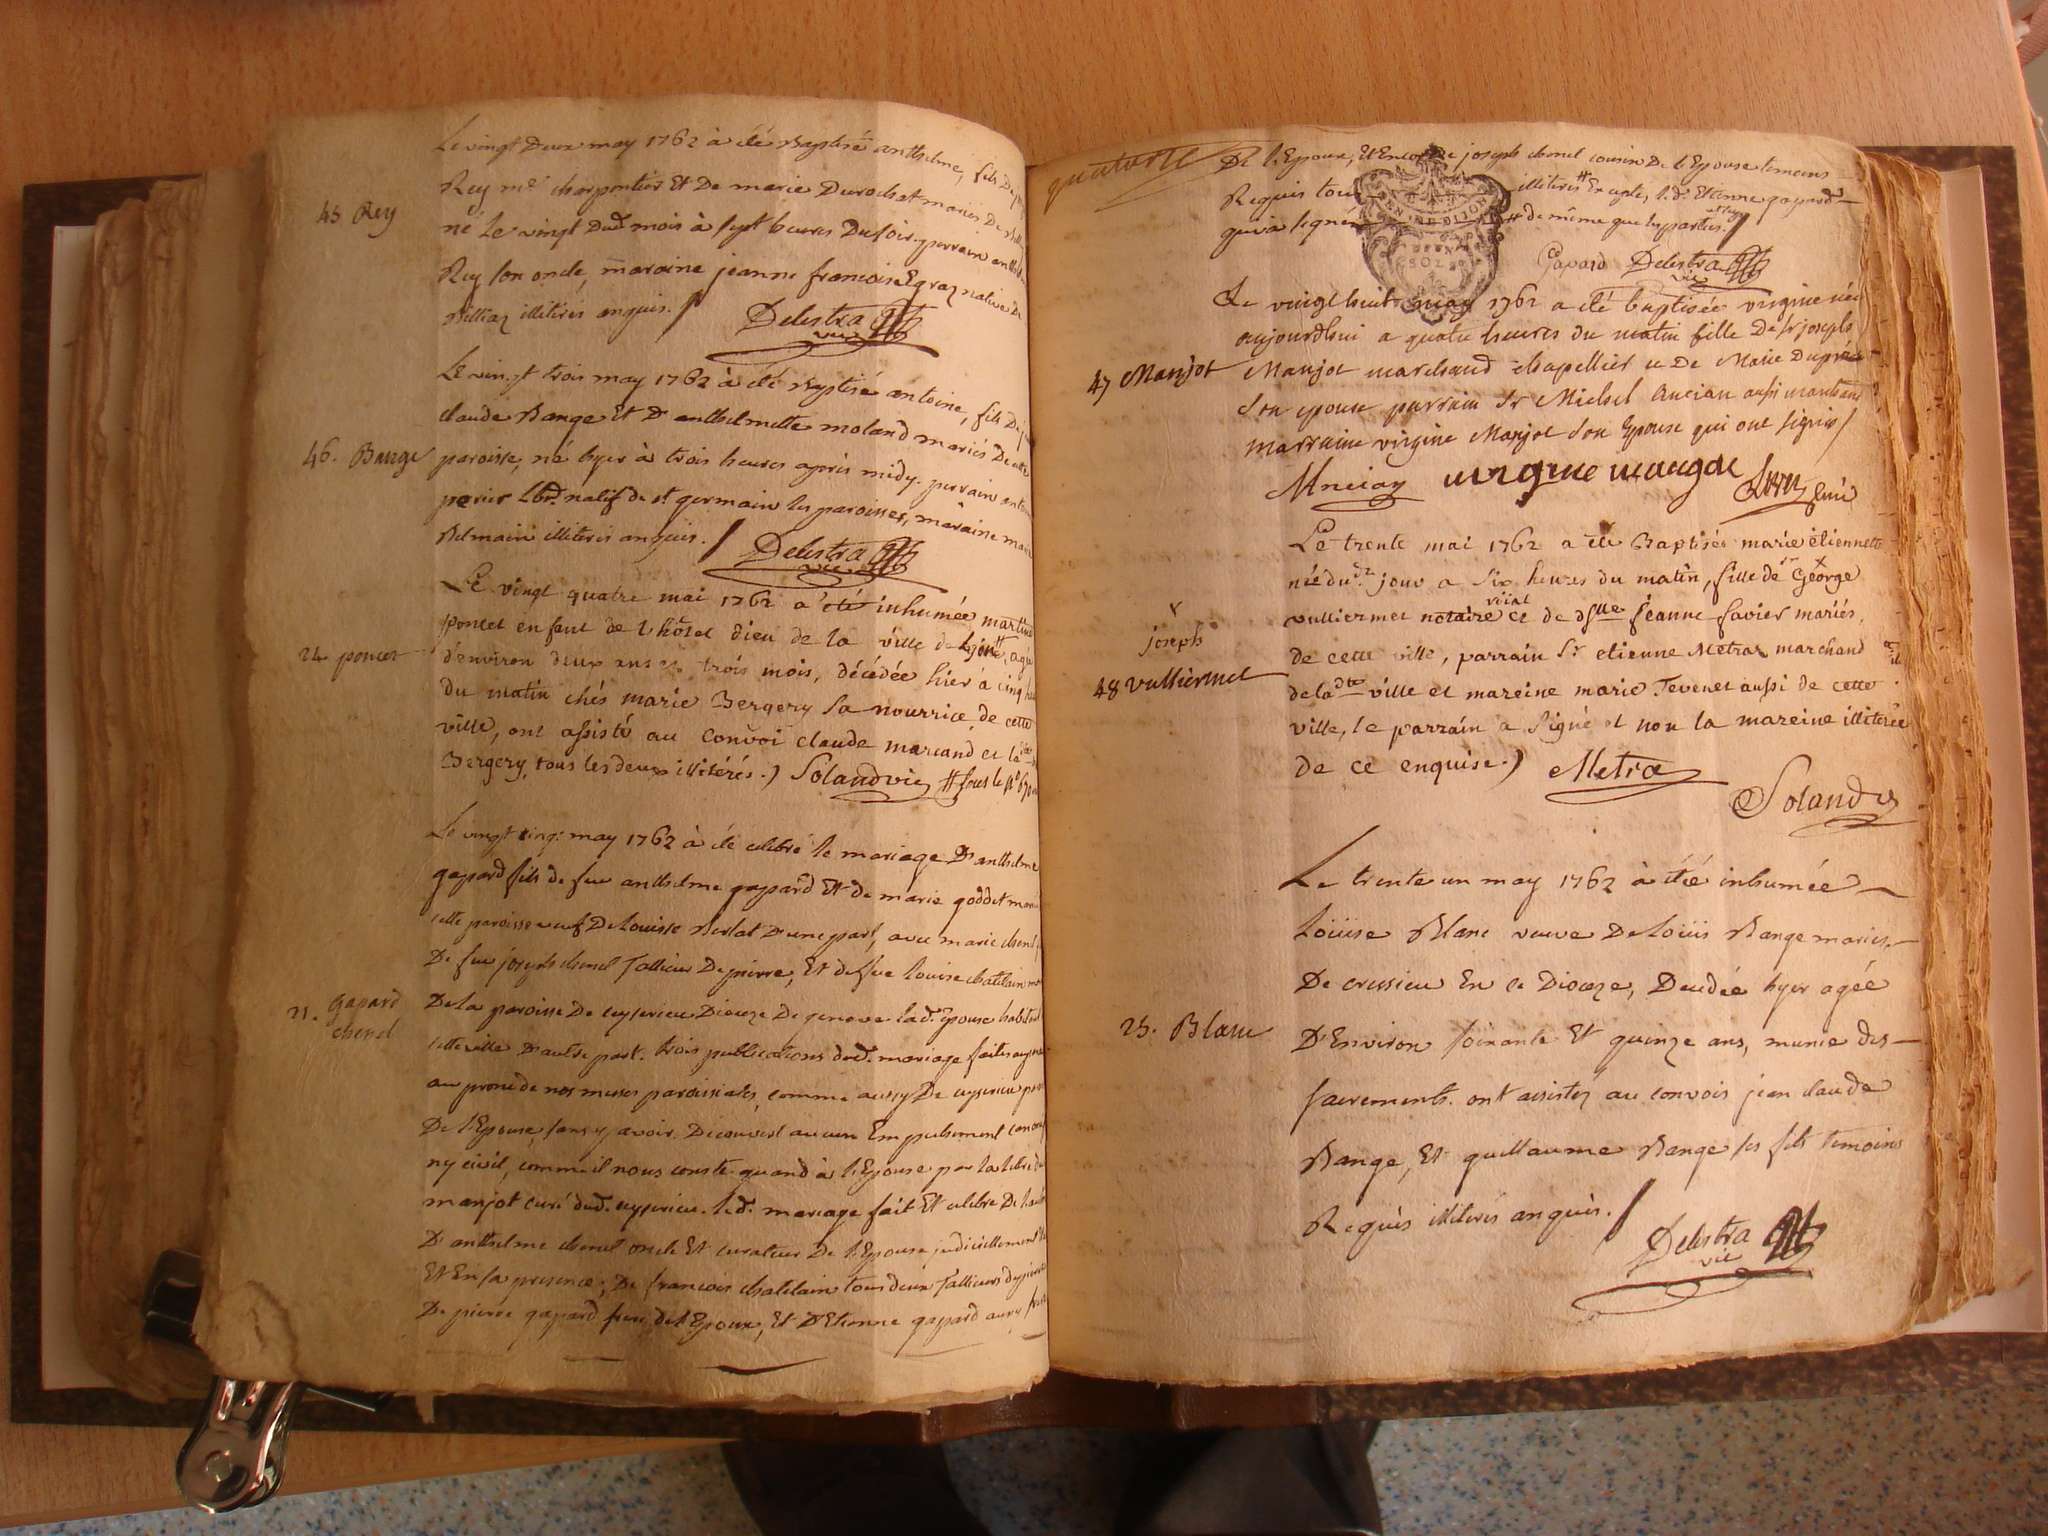 Le vingt Deux may 1762 à été Baptisé anthelme, fils De
45 Rey
Rey me charpentier Et De marie Durochat mariés De
né Le vingt Dud. mois à sept heures Du soir. parrain
Rey son oncle, maraine jeanne francoise graz native De
illiterés enquis. /
Delestra vic
Le vingt trois may 1762 à été Baptisé antoine, fils De
claude Bange Et D'anthelmette moland mariés De cette
46. Bange
paroisse, né hyer à trois heures après midy. parrain antoine
perier natif de st germain les paroisses, maraine marie
Belmain illiterés enquis. /
Delestra vic
Le vingt quatre mai 1762 a été inhumée martine
poncet enfant de l'hôtel dieu de la ville de Lyon #, agée
24 poncet
d'environ deux ans et trois mois, décédée hier à cinq
du matin chés marie Bergery sa nourrice de cette
ville, ont assisté au convoi claude marcand et la dite
Bergery, tous les deux illitérés.) Soland vic # sous le n°
Le vingt cinq may 1762 à été celebré le mariage D'anthelme
gapard fils de feu anthelme gapard Et de marie goddet
cette paroisse veuf De Louise Berlat D'une part, avec marie chenel
De feu joseph chenel Tallieur De pierre, Et de feue louise chatelain
21. Gapard
chenel
De la paroisse De ceyserieu Dioceze De geneve lad. Epouse habitant
cette ville D'autre part. trois publications dud. mariage faites
au prone de nos messes paroissiales, comme aussy De ceyserieu
De l'Epouse, sans y avoir Decouvert aucun Empechement canonique
ny civil, comme il nous conste quand à l'Epouse par la lettre du
manjot curé dud. ceyserieu. led. mariage fait Et celebré De
D'anthelme chenel oncle Et curateur De l'Epouse judiciellement
Et En sa presence; De francois chatelain tous deux Tallieurs de pierre
De pierre gapard frere de l'Epoux, Et D'Etienne gapard aussy frere
quatorze
De l'Epoux, Et Encor De joseph chenel cousin De l'Epouse temoins
Requis tous illiterés # Excepte, led. Etienne gapard
qui a signé # de même que les parties. /
GEN. DE DIJON
SOLS
Gapard Delestra vic
Le vingt huit may 1762 a été baptisée virgine née
aujourdhui a quatre heures du matin fille De sr joseph
47 Manjot
Manjot marchand chapellier et De Marie Dupré
son epouse parrain Sr Michel Ancian aussi marchand
marraine virgine Manjot son Epouse qui ont signés /
Mncian virgine mangot
Le trente mai 1762 a été Baptisée marie étiennette
née du.dt jour a six heures du matin, fille de sr George
vulliermet notaire et de dslle jeanne favier mariés,
joseph
48 vulliermet
de cette ville, parrain Sr etienne Metraz marchand
de la dte ville et mareine marie Tevenet aussi de cette
ville, le parrain a signé et non la mareine illiterée
de ce enquise.) Metra
Soland v
Le trente un may 1762 à étée inhumée
Loüise Blanc veuve De loüis Bange mariés
De cressieu En ce Dioceze, Decedée hyer agée
25. Blanc
D'Environ soixante Et quinze ans, munie des
sacrements. ont assistez au convois jean claude
Bange, Et guillaume Bange ses fils temoins
Requis illiterés enquis. /
Delestra vic